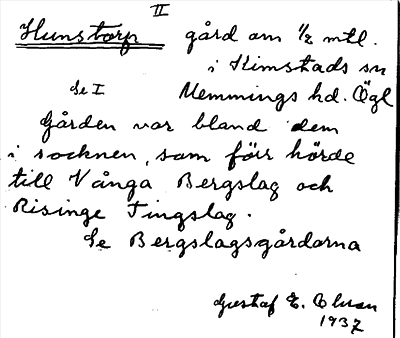 II
Hunstorp gård om 1/2 mtl.
i Kimstads sn
Se I Memmings hd. Ögl
Gården var bland dem
i socknen, som förr hörde
till Vånga Bergslag och
Risinge Tingslag.
Se Bergslagsgårdarna
Gustaf E. Olsson
1937